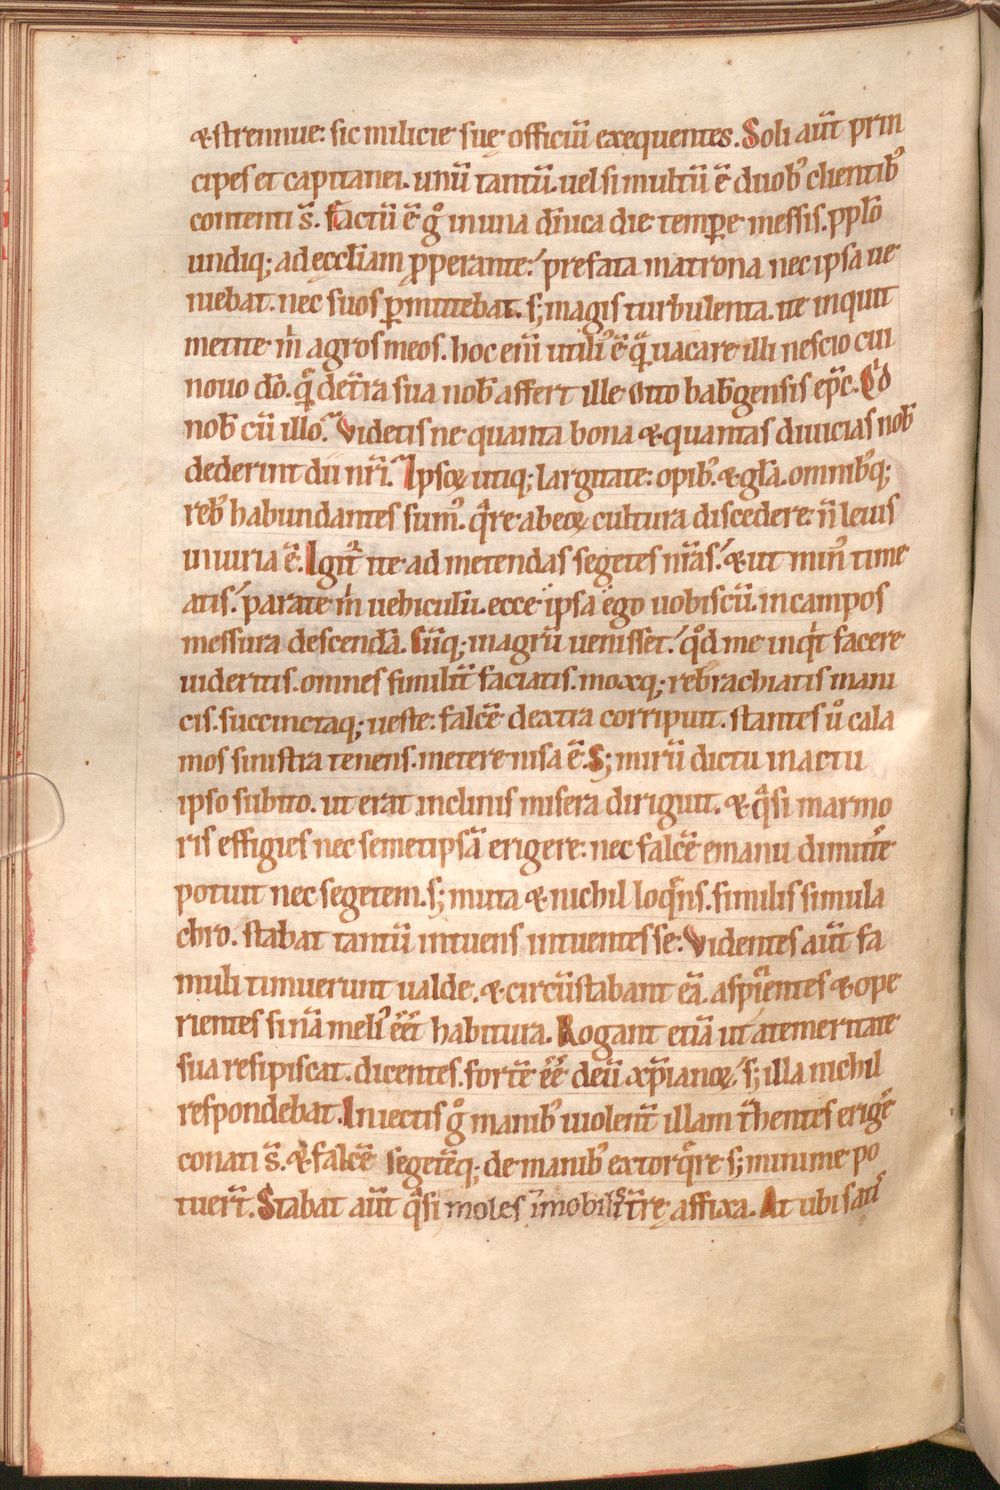 & strennue: sic milicie suę officiū exequentes. Soli aut̄ prin
cipes et capitanei. unū tantū. uel si multū ē duob᷒ clientib᷒
contenti s̄. Factū ē gͦ in una dn̄ica die temꝑe messis. pplō
undiq; ad eccl̄iam ꝓperante: prefata matrona nec ipsa ue
niebat. nec suos ꝑmittebat. s; magis turbulenta. ite inquit
metite m̍ agros meos. hoc enī utili᷒ ē qͣ̄ uacare illi nescio cui
nouo dō. qͣ̄ de tr̄a sua nob̄ affert ille Otto bab̄gensis ep̄c. Qͥd
nob̄ cū illo? Videtis ne quanta bona & quantas diuicias nob̄
dederint dii nr̄i? Ipsoꝝ utiq; largitate: opib᷒. & gl̄a. omnib᷒q;
reb᷒ habundantes sum᷒. qͣre ab eoꝝ cultura discedere: n̄ leuis
iniuria ē. Igit᷑ ite ad metendas segetes nr̄as. & ut min᷒ time
atis. parate m̍ uehiculū. ecce ipsa ego uobiscū. in campos
messura descendā. Cūq; in agrū uenisset. qͦd me inqͥt facere
uideritis. omnes similit̄ faciatis. moxq; rebrachiatis mani
cis. succinctaq; ueste: falcē dextra corripuit. stantes uͦ cala
mos sinistra tenens. metere nisa ē. S; mirū dictu in actu
ipso subito. ut erat inclinis misera diriguit. & qͣsi marmo
ris effigies nec semetipsā erigere: nec falcē e manu dimittē
potuit nec segetem. s; muta & nichil loqͣns. similis simula
chro. stabat tantū intuens intuentes se: Videntes aut̄ fa
muli timuerunt ualde. & circūstabant eā. aspitientes & ope
rientes si nā meli᷒ eēt habitura. Rogant etiā ut a temeritate
sua resipiscat. dicentes. fortē eē deū xp̄ianoꝝ. s; illa nichil
respondebat. Iniectis gͦ manib᷒ uiolent̄ illam tͣhentes erigē
conati s̄. & falcē segetēq; de manib᷒ extorqͣre s; minime po
tuer̄t. Stabat aut̄ qͣsi moles īmobilis tr̄rę affixa. At ubi satis